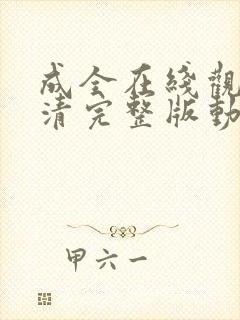 成全在綫觀
清完整版動
甲六一